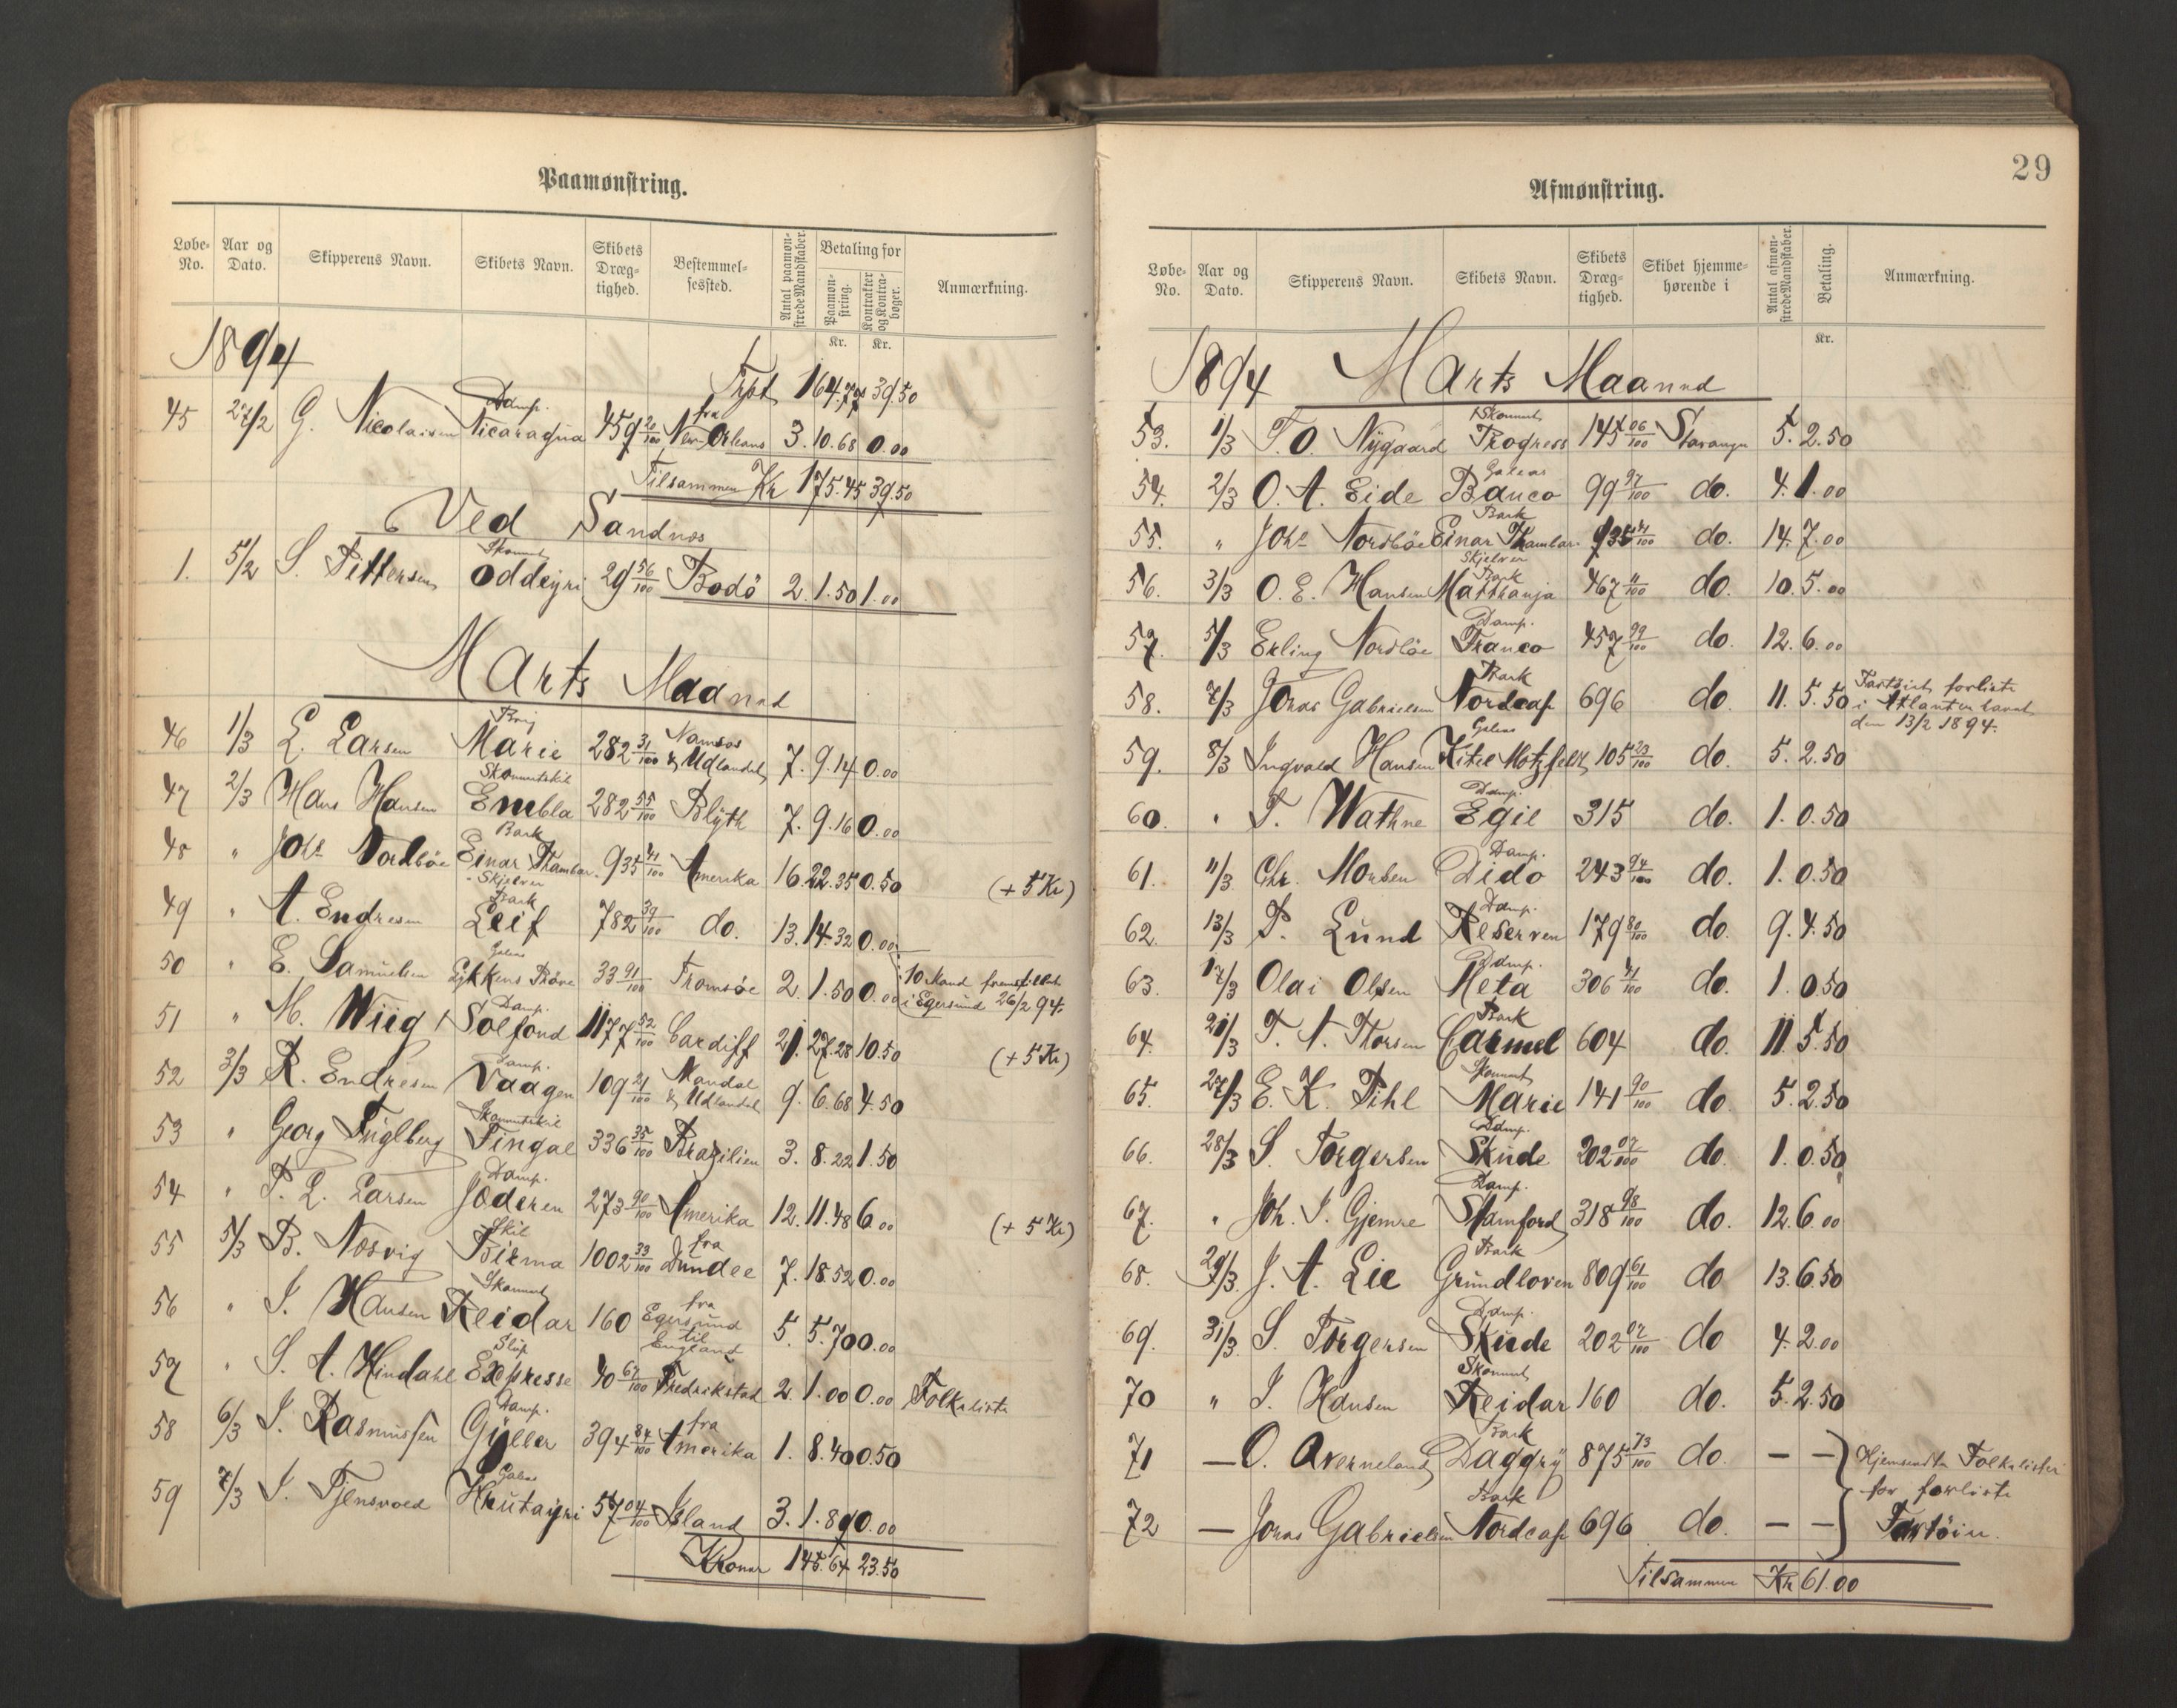 Paamønstring.
Løbe-No. Aar og Dato. Skipperens Navn. Skibets Navn. Skibets Dræg-tighed. Bestemmel-sessted. Antal paamøn-strede Mandskaber. Betaling for Paamøn-string. Kr. Kontrakter og Kontra-bøger. Kr. Anmærkning.
1894
Trpt 164.77 39.50
45 27/2 G. Nicolaisen Damp. Nicaragua 459 20/100 fra New-Orleans 3. 10.68 0.00
Tilsammen Kr 175.45 39.50
Ved Sandnes
1. 5/2 S. Pettersen Skonnert Oddeyri 29 56/100 Bodö 2. 1.50 1.00
Marts Maaned
46 1/3 L. Larsen Brig Marie 282 31/100 Namsos & Udlandet 7. 9.14 0.00
47 2/3 Hans Hansen Skonnertskib Embla 282 55/100 Blyth 7. 9.16 0.00
48 " Johs Nordböe Bark Einar Thambar-Skjelver 935 41/100 Amerika 16. 22.35 0.50 (+ 5 Kr)
49 " A. Endresen Bark Leif 782 39/100 do. 13. 14.32 0.00
50 " E. Samuelsen Galeas Lykkens Pröve 33 91/100 Tromsöe 2. 1.50 0.00 10 Mand fremstillet i Egersund 26/2 94.
51 " M. Wiig Damp. Solfond 1177 52/100 Cardiff 21. 27.28 10.50 (+ 5 Kr)
52 3/3 R. Endresen Damp. Vaagen 109 21/100 Mandal & Udlandet 9. 6.68 4.50
53 " Georg Fuglberg Skonnertskib Fingal 336 35/100 Brazilien 3. 8.22 1.50
54 " P. L. Larsen Damp. Jæderen 273 90/100 Amerika 12. 11.48 6.00 (+ 5 Kr)
55 5/3 B. Næsvig Skib Birma 1002 33/100 fra Dundee 7. 18.52 0.00
56 " I. Hansen Skonnert Reidar 160 fra Egersund til England 5. 5.70 0.00
57 " S. A. Hindahl Slup Expresse 40 67/100 Fredrikstad 2. 1.00 0.00 Folkeliste
58 6/3 S. Rasmussen Damp. Gyller 394 84/100 fra Amerika 1. 8.40 0.50
59 7/3 I. Tjensvold Galeas Hrutayri 57 04/100 Island 3. 1.89 0.00
Kroner 145.64 23.50
29
Afmønstring.
Løbe-No. Aar og Dato. Skipperens Navn. Skibets Navn. Skibets Dræg-tighed. Skibet hjemme-hørende i Antal afmøn-strede Mandskaber. Betaling. Kr. Anmærkning.
1894 Marts Maaned
53. 1/3 T. O. Nygaard Skonnert Progress 145 06/100 Stavanger 5. 2.50
54. 2/3 O. A. Eide Galeas Banco 99 97/100 do. 4. 1.00
55. " Johs Nordböe Bark Einar Thambar-Skjelver 935 41/100 do. 14. 7.00
56. 3/3 O. E. Hansen Bark Matthanja 467 11/100 do. 10. 5.00
57. 5/3 Erling Nordböe Damp. Franco 457 99/100 do. 12. 6.00
58. 7/3 Jonas Gabrielsen Bark Nordcap 696 do. 11. 5.50 Fartöiet forliste i Atlanterhavet den 13/2 1894.
59. 8/3 Ingvald Hansen Galeas Kitel Motzfeldt 105 23/100 do. 5. 2.50
60. " T. Wathne Damp. Egil 315 do. 1. 0.50
61. 11/3 Chr. Monsen Damp. Dido 243 94/100 do. 1. 0.50
62. 13/3 P. Lund Damp. Reserven 179 80/100 do. 9. 4.50
63. 17/3 Olai Olsen Damp. Meta 306 41/100 do. 1. 0.50
64. 21/3 T. A. Thorsen Bark Carmel 604 do. 11. 5.50
65. 27/3 E. K. Pihl Skonnert Marie 141 90/100 do. 5. 2.50
66. 28/3 S. Torgersen Damp. Skude 202 07/100 do. 1. 0.50
67. " Joh. S. Gjemre Damp. Stamford 318 98/100 do. 12. 6.00
68. 29/3 J. A. Lie Bark Grundloven 809 61/100 do 13. 6.50
69. 31/3 S. Torgersen Damp. Skude 202 07/100 do 4. 2.00
70 " I. Hansen Skonnert Reidar 160 do. 5. 2.50
71 — O. Averneland Bark Daggry 875 73/100 do. — — Hjemsendte Folkelister
72 — Jonas Gabrielsen Bark Nordcap 696 do. — — for forliste Fartöier.
Tilsammen Kr 61.00